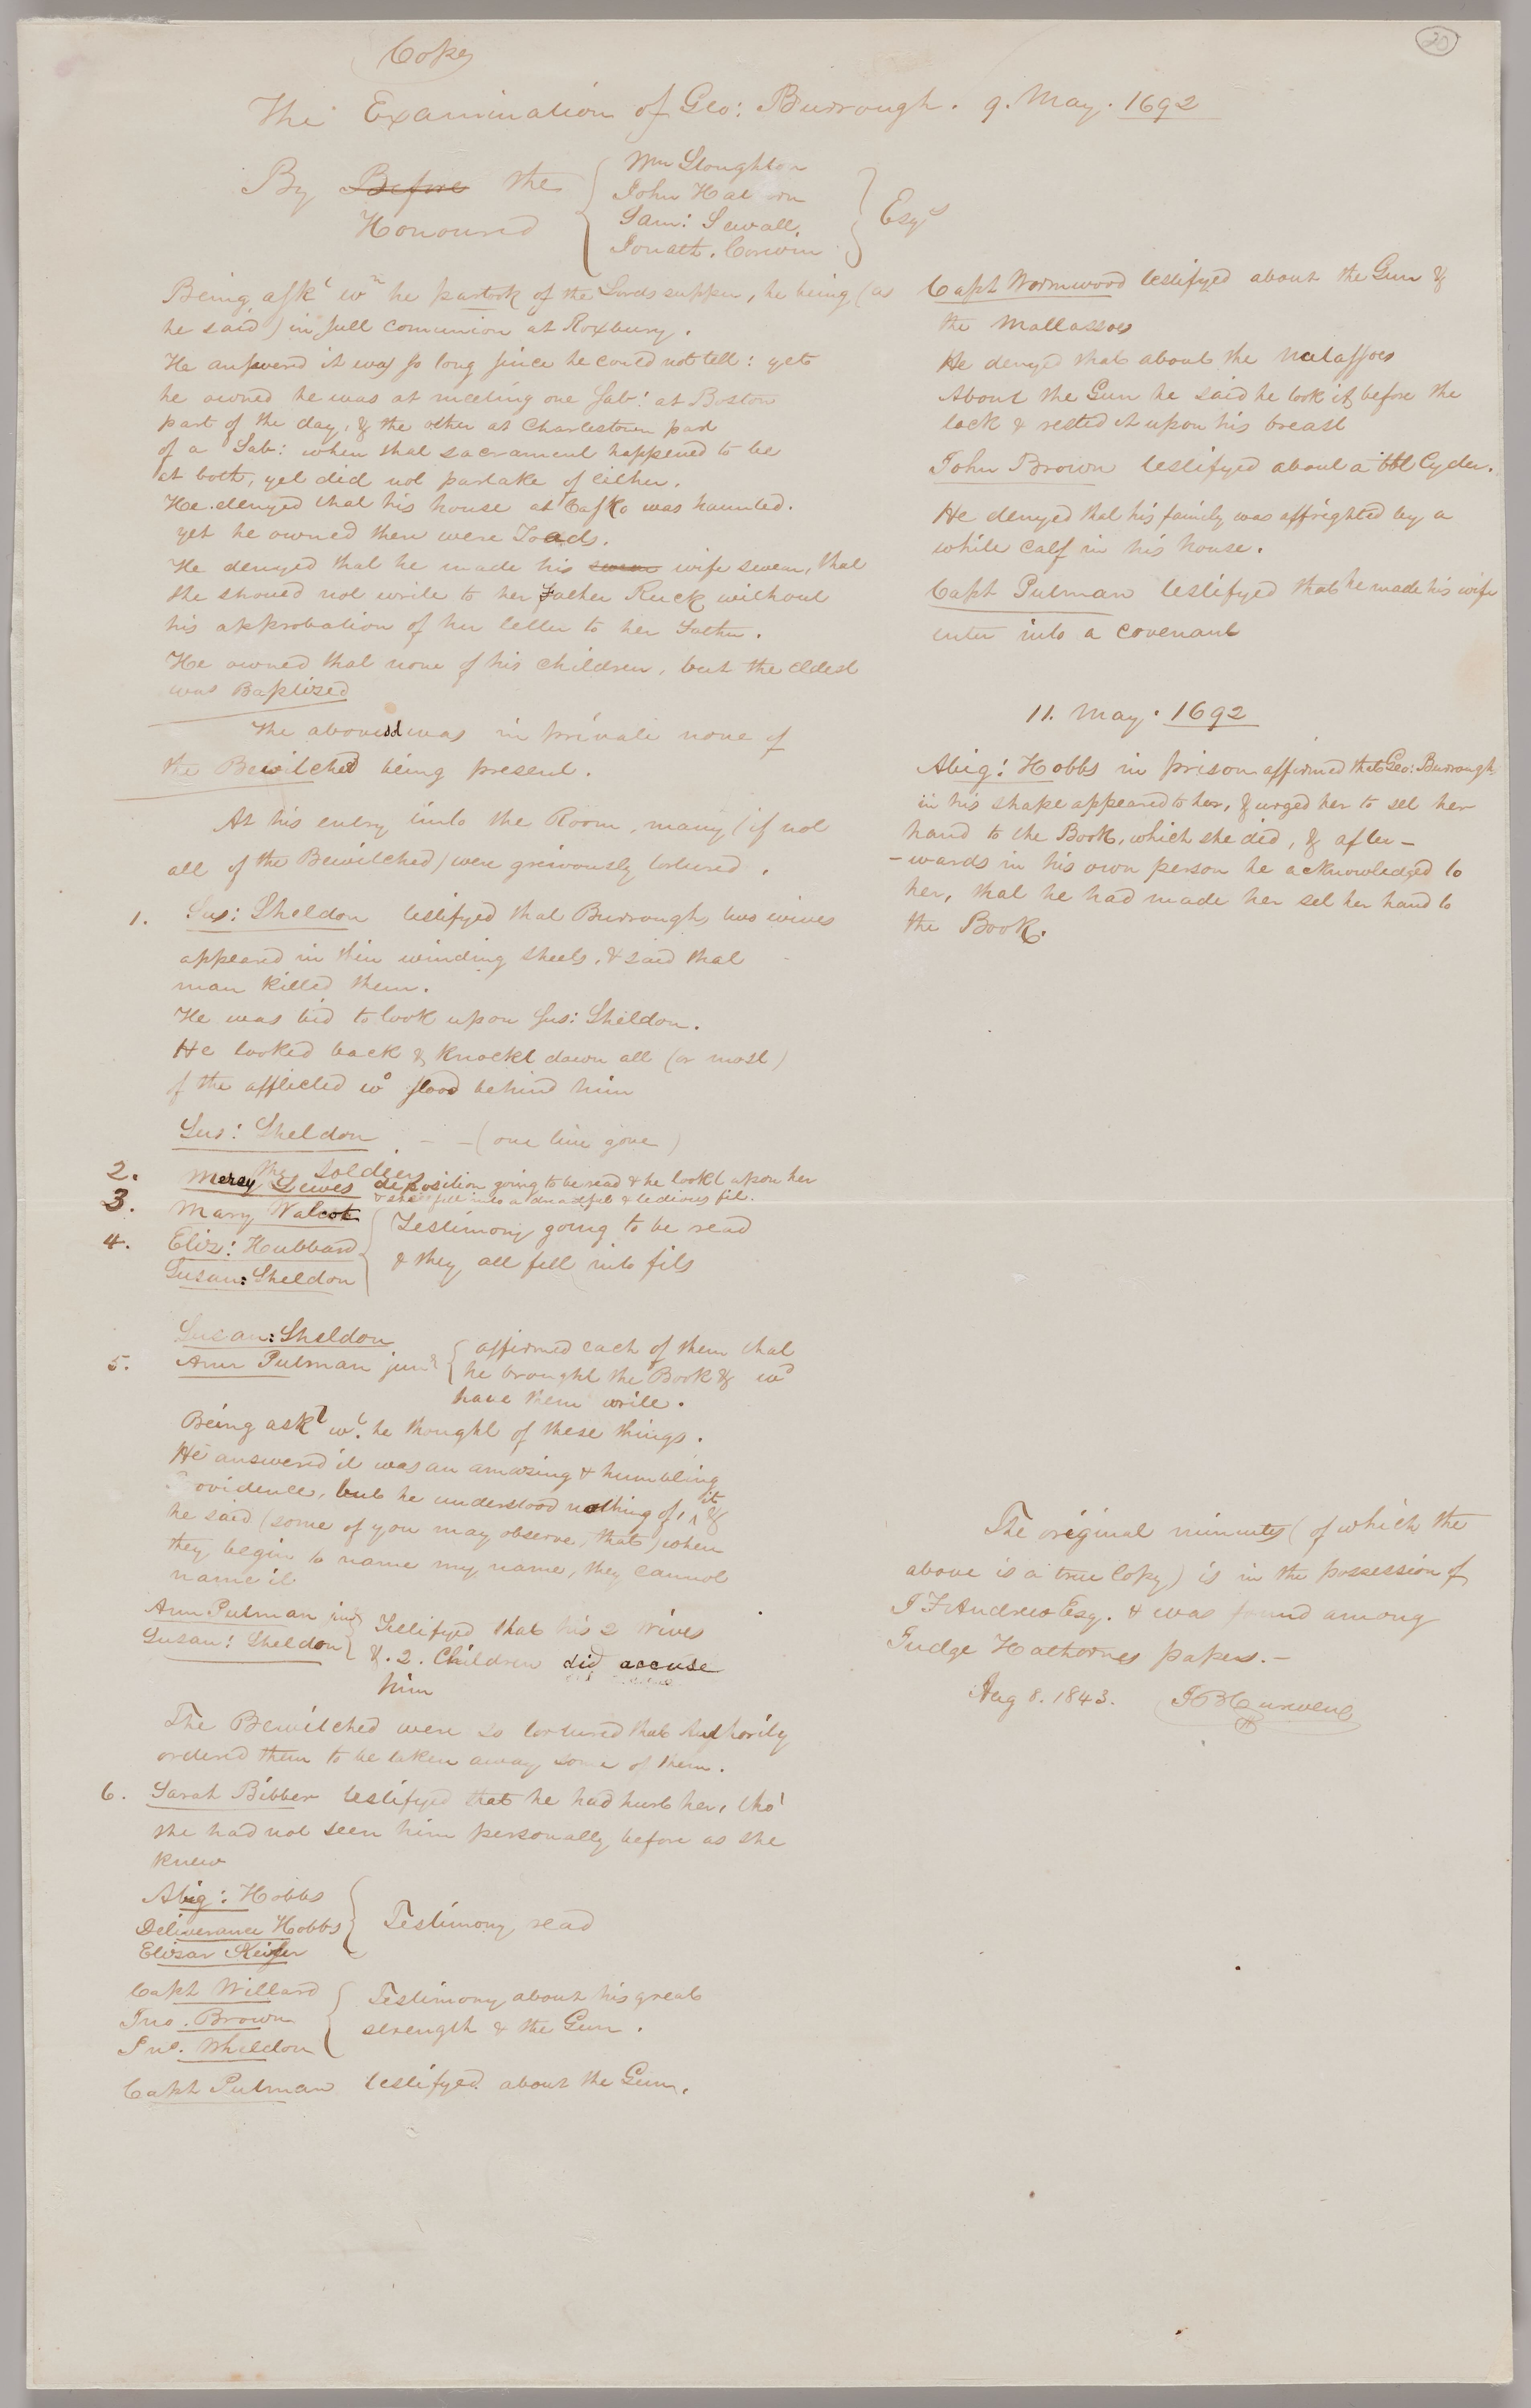 20
Copy
The Examination of Geo: Burrough. 9. May. 1692
By Before the
Honoured
Wm Stoughton
John Hathorn
Sam: Sewall.
Jonath. Corwin
Esqrs
Being askt wn he partook of the Lords supper, he being (as
he said) in full comunion at Roxbury.
He answered it was so long since he could not tell: yet
he owned he was at meeting one Sab: at Boston
part of the day, & the other at Charlestown part
of a Sab: when that sacrament happened to be
at both, yet did not partake of either.
He denyed that his house at Casko was haunted.
yet he owned there were Toads.
He denyed that he made his swear wife swear, that
she should not write to her Father Ruck without
his approbation of her letter to her Father.
He owned that none of his children, but the eldest
was Baptized
The abovesd was in private none of
the Bewitched being present.
At his entry into the Room, many (if not
all of the Bewitched) were greivously tortured.
1. Sus: Sheldon testifyed that Burroughs two wives
appeared in their winding sheets, & said that
man killed them.
He was bid to look upon Sus: Sheldon.
He looked back & knockt down all (or most)
of the afflicted wo stood behind him
Sus: Sheldon - - (one line gone)
the Soldiers
2. Mercy Lewes deposition going to be read & he lookt upon her
& she fell into a dreadful & tedious fit.
3. Mary Walcot
4. Eliz: Hubbard
Susan: Sheldon
Testimony going to be read
& they all fell into fits
Susan: Sheldon
5. Ann Putman junr
affirmed each of them that
he brought the Book & wd
have them write.
Being askt wt. he thought of these things.
He answered it was an amazing & humbling
Providence, but he understood nothing of it &
he said (some of you may observe, that) when
they begin to name my name, they cannot
name it
Ann Putman junr
Susan: Sheldon
Testifyed that his 2 wives
& .2. Children did accuse
him
The Bewitched were so tortured that Authority
ordered them to be taken away some of them.
6. Sarah Bibber testifyed that he had hurt her, tho'
she had not seen him personally before as she
knew
Abig: Hobbs
Deliverance Hobbs
Elizar Keiser
Testimony read
Capt Willard
Jno. Brown
Jno. Wheldon
Testimony about his great
strength & the Gun.
Capt Putman testifyed about the Gun.
Capt Wormwood testifyed about the Gun &
the Mallassoes
He denyed that about the Malassoes
About the Gun he said he took it before the
lock & rested it upon his breast
John Brown testifyed about a bbl Cyder.
He denyed that his family was affrighted by a
white calf in his house.
Capt Putman testifyed that he made his wife
enter into a covenant
11. May. 1692
Abig: Hobbs in prison affirmed that Geo: Burrough
in his shape appeared to her, & urged her to set her
hand to the Book, which she did, & after-
-wards in his own person he acknowledged to
her, that he had made her set her hand to
the Book.
The original minutes (of which the
above is a true Copy) is in the possession of
J F Andrews Esq. & was found among
Judge Hathornes papers.-
Aug 8. 1843. J B Curwen